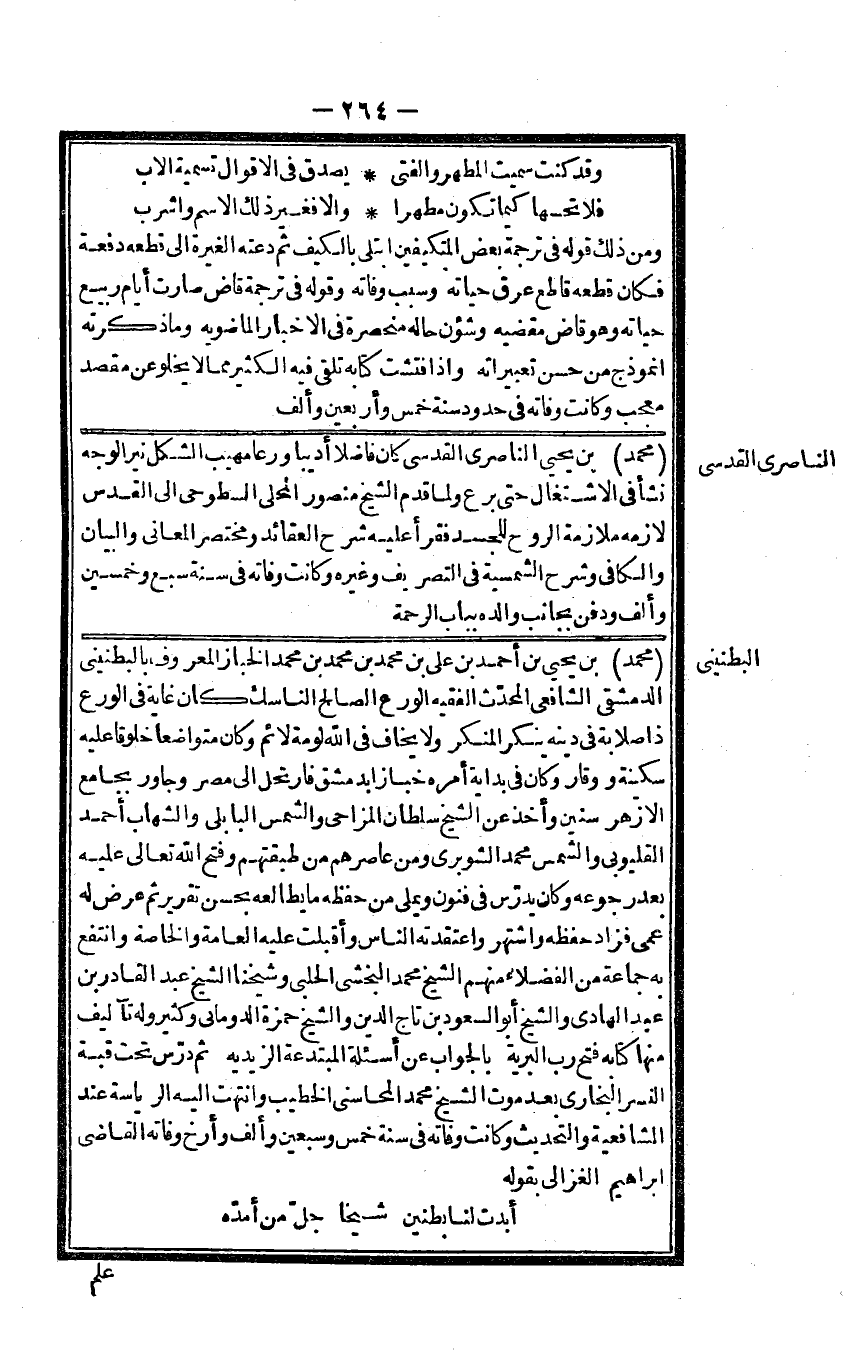 — ٢٦٤ —
وقد كنت سميت المطهر والفتى * يصدق فى الاقوال تسمية الاب
فلا تحسها كيما تكون مطهرا * والا فغير ذلك الاسم واشرب
ومن ذلك قوله فى ترجمة بعض المتكيفين ابتلى بالكيف ثم دعته الغيرة الى قطعه دفعة
فكان قطعه قاطع عرق حياته وسبب وفاته وقوله فى ترجمة قاض صارت أيام ربيع
حياته وهو قاض مقضيه وشؤن حاله منحصرة فى الاخبار الماضويه وماذكرته
انموذج من حسن تعبيراته واذا فتشت كتابه تلقى فيه الكثير مما لا يخلو عن مقصد
معجب وكانت وفاته فى حدود سنة خمس وأربعين وألف
الناصرى القدسى
(محمد) بن يحيى الناصرى القدسى كان فاضلا أديبا ورعا مهيب الشكل نير الوجه
نشأ فى الاشتغال حتى برع ولما قدم الشيخ منصور المحلى السطوحى الى القدس
لازمه ملازمة الروح للجسد فقرأ عليه شرح العقائد ومختصر المعانى والبيان
والكافى وشرح الشمسية فى التصريف وغيره وكانت وفاته فى سنة سبع وخمسين
وألف ودفن بجانب والده بباب الرحمة
البطنينى
(محمد) بن يحيى بن أحمد بن على بن محمد بن محمد بن محمد الخباز المعروف بالبطنينى
الدمشقى الشافعى المحدّث الفقيه الورع الصالح الناسك كان غاية فى الورع
ذا صلابة فى دينه ينكر المنكر ولا يخاف فى الله لومة لائم وكان متواضعا خلوقا عليه
سكينة ووقار وكان فى بداية أمره خبازا بدمشق فارتحل الى مصر وجاور بجامع
الازهر سنين وأخذ عن الشيخ سلطان المزاحى والشمس البابلى والشهاب أحمد
القليوبى والشمس محمد الشوبرى ومن عاصرهم من طبقتهم وفتح الله تعالى عليه
بعد رجوعه وكان يدرّس فى فنون ويملى من حفظه ما يطالعه بحسن تقرير ثم عرض له
عمى فزاد حفظه واشتهر واعتقدته الناس وأقبلت عليه العامة والخاصة وانتفع
به جماعة من الفضلاء منهم الشيخ محمد البخشى الحلبى وشيخنا الشيخ عبد القادر بن
عبد الهادى والشيخ أبو السعود بن تاج الدين والشيخ حمزة الدومانى وكثير وله تآليف
منها كتابه فتح رب البرية بالجواب عن أسئلة المبتدعة الزيديه ثم درّس تحت قبة
النسر البخارى بعد موت الشيخ محمد المحاسنى الخطيب وانتهت اليه الرياسة عند
الشافعية والتحديث وكانت وفاته فى سنة خمس وسبعين وألف وأرخ وفاته القاضى
ابراهيم الغزالى بقوله
أبدت لنا بطنين شيخا جلّ من أمدّه
علم